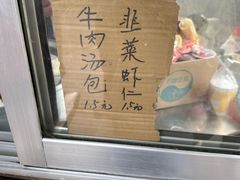 韭菜虾仁 1.5元
牛肉汤包 1.5元